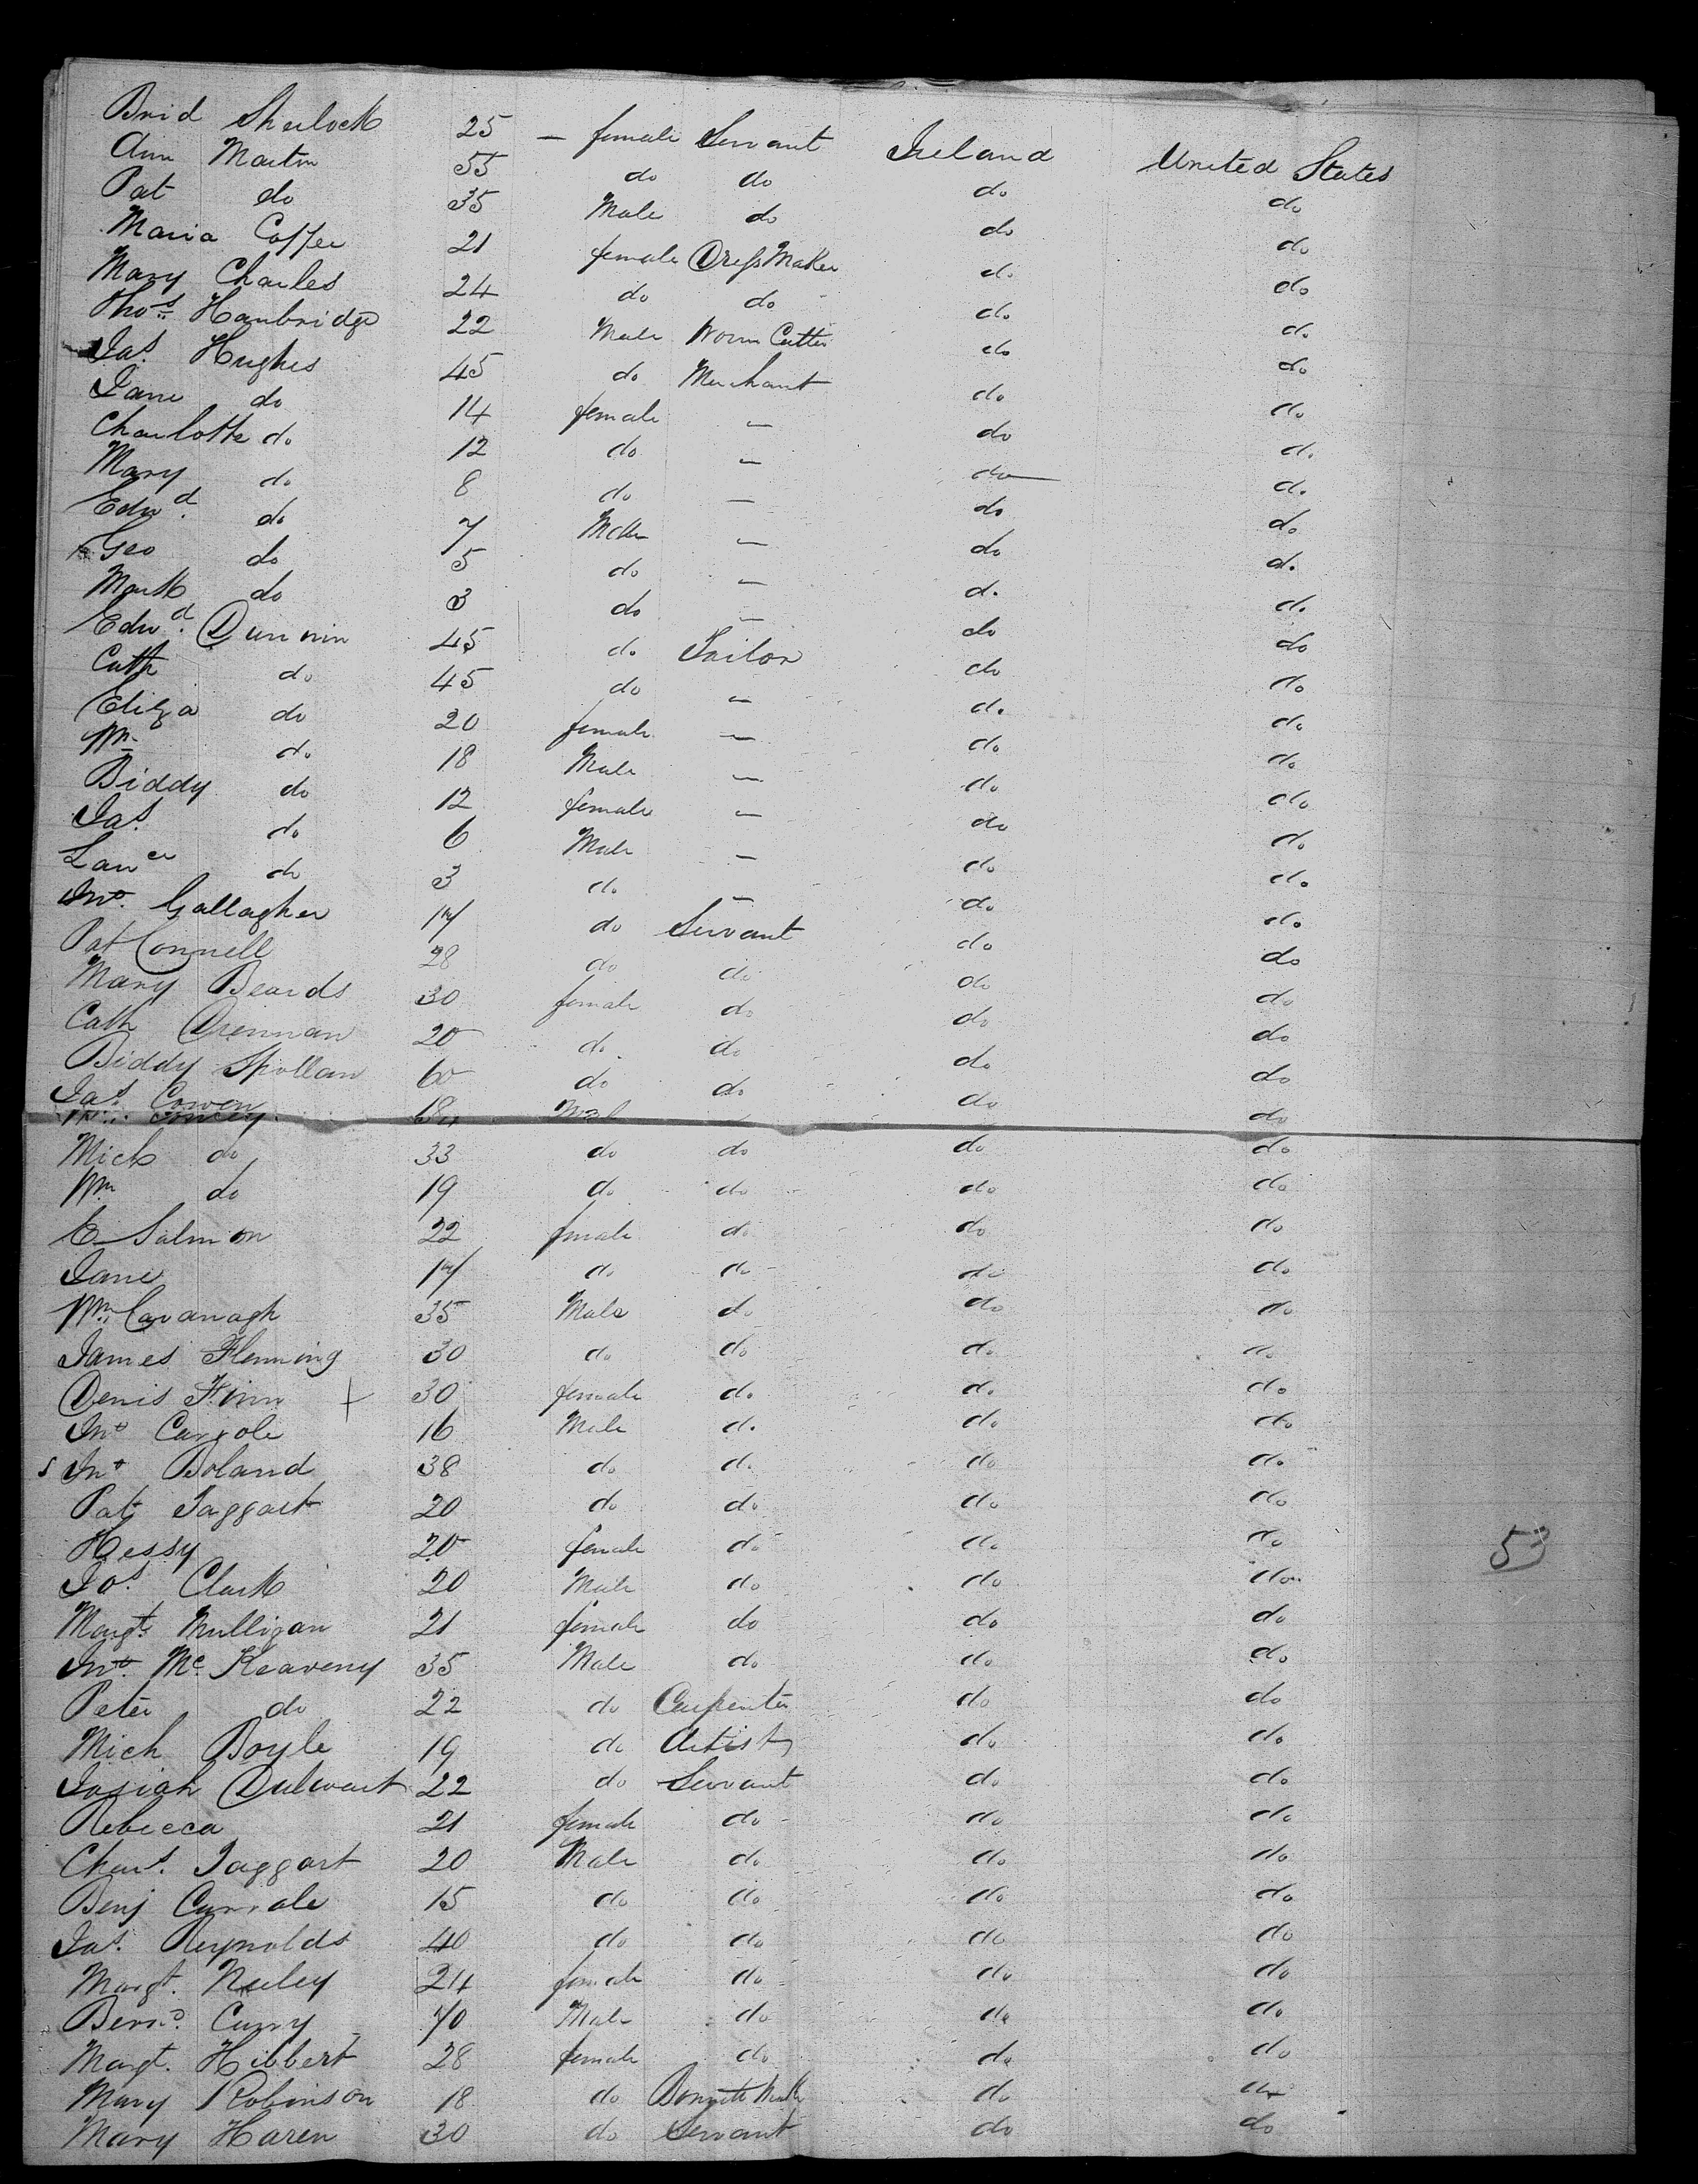 Brid Sherlock 25 – female Servant Ireland United States
Ann Martin 55 do do do do
Pat do 35 Male do do do
Maria Coffee 21 female Dress Maker do do
Mary Charles 24 do do do do
Thos Hanbridge 22 Male Cutter do do
Jas Hughes 45 do Merchant do do
Jane do 14 female – do do
Charlotte do 12 do – do do
Mary do 8 do – do do
Edwd do 7 Male – do do
Geo do 5 do – do do
Mark do 3 do – do do
Edwd Dunnin 45 do Tailor do do
Cath do 45 do – do do
Eliza do 20 female – do do
Wm do 18 Male – do do
Biddy do 12 female – do do
Jas do 6 Male – do do
Lance do 3 do – do do
Jno Gallagher 17 do Servant do do
Pat Connell 28 do do do do
Mary Beards 30 female do do do
Cath Drennan 20 do do do do
Biddy Spollan 60 do do do do
Jas Cowen 18 Mal do do
Mick do 33 do do do do
Wm do 19 do do do do
E Salmon 22 female do do do
Jane 17 do do do do
Wm Cavanagh 35 Male do do do
James Flenning 30 do do do do
Denis Finn + 30 female do do do
Jno Carrole 16 Male do do do
Jno Boland 38 do do do do
Pat Taggart 20 do do do do
Hessy 20 female do do do
Jos Clark 20 Male do do do
Margt Mulligan 21 female do do do
Jno Mc Keaveny 35 Male do do do
Peter do 22 do Carpenter do do
Mich Boyle 19 do Artist do do
Josiah 22 do Servant do do
Rebecca 21 female do do do
Chas Taggart 20 Male do do do
Benj Carrole 15 do do do do
Jas Reynolds 40 do do do do
Margt Neeley 24 female do do do
Bernd Curry 40 Male do do do
Margt Hibbert 28 female do do do
Mary Robinson 18 do do do
Mary Haren 30 do Servant do do
53